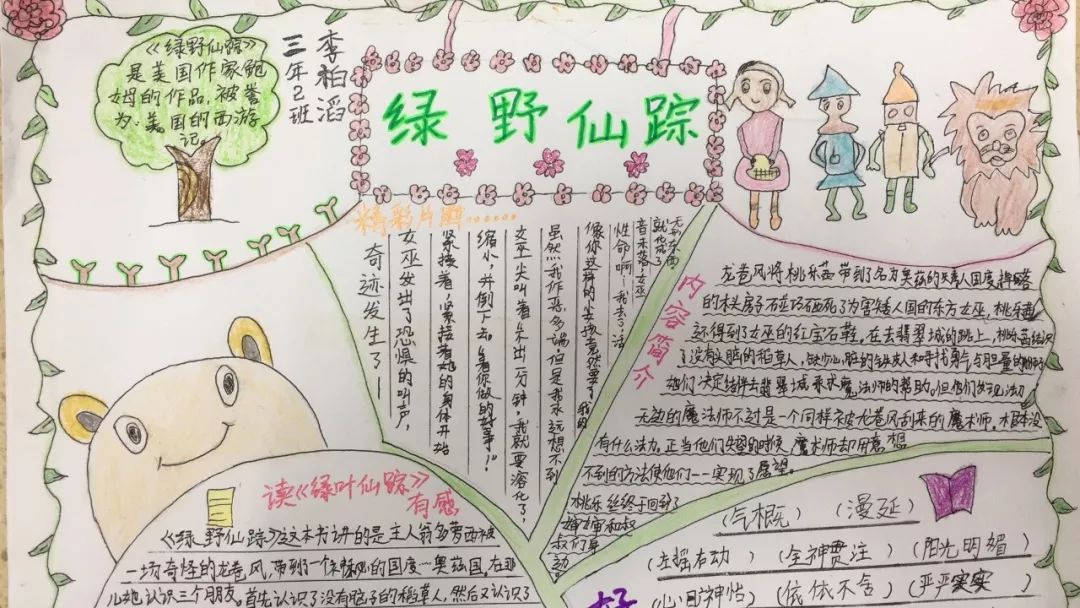 《绿野仙踪》
是美国作家鲍
姆的作品,被誉
为:美国的西游
记。
三年2班
李柏滔
绿野仙踪
精彩片段……
奇迹发生了——
女巫发出了恐惧的叫声,
紧接着,紧接着她的身体开始
缩小,并倒下去。"看你做的好事!"
女巫尖叫着,"不出一分钟,我就要溶化了,
虽然我作恶多端,但是我永远想不到
像你这样的小女孩竟然要了我的
性命啊——我去了"话
音未落,女巫
就
内容简介
龙卷风将桃乐茜带到了名为奥兹的矮人国度,
的木头房子砸巧砸死了为害矮人国的东方女巫,桃乐茜
还得到了女巫的红宝石鞋。在去翡翠城的路上,桃乐茜结识
了没有头脑的稻草人,缺少心脏的铁皮人和寻找勇气与胆量的狮子
她们决定结伴去翡翠城寻求魔法师的帮助。但他们发现法力
无边的魔法师不过是一个同样被龙卷风刮来的魔术师。根本没
有什么法力。正当他们失望的时候,魔术师却用意想
不到的方法使他们一一实现了愿望。
桃乐丝终于回到了
婶婶和叔
叔们身
边。
读《绿叶仙踪》
有感
《绿野仙踪》这本书讲的是主人翁多萝西被
一场奇怪的龙卷风,带到了一个陌生的国度…奥兹国。在那
儿她认识三个朋友。首先认识了没有脑子的稻草人,然后又认识了
(气概) (漫延)
(左摇右动) (全神贯注) (阳光明媚)
好
(心旷神怡) (依依不舍) (严严实实)